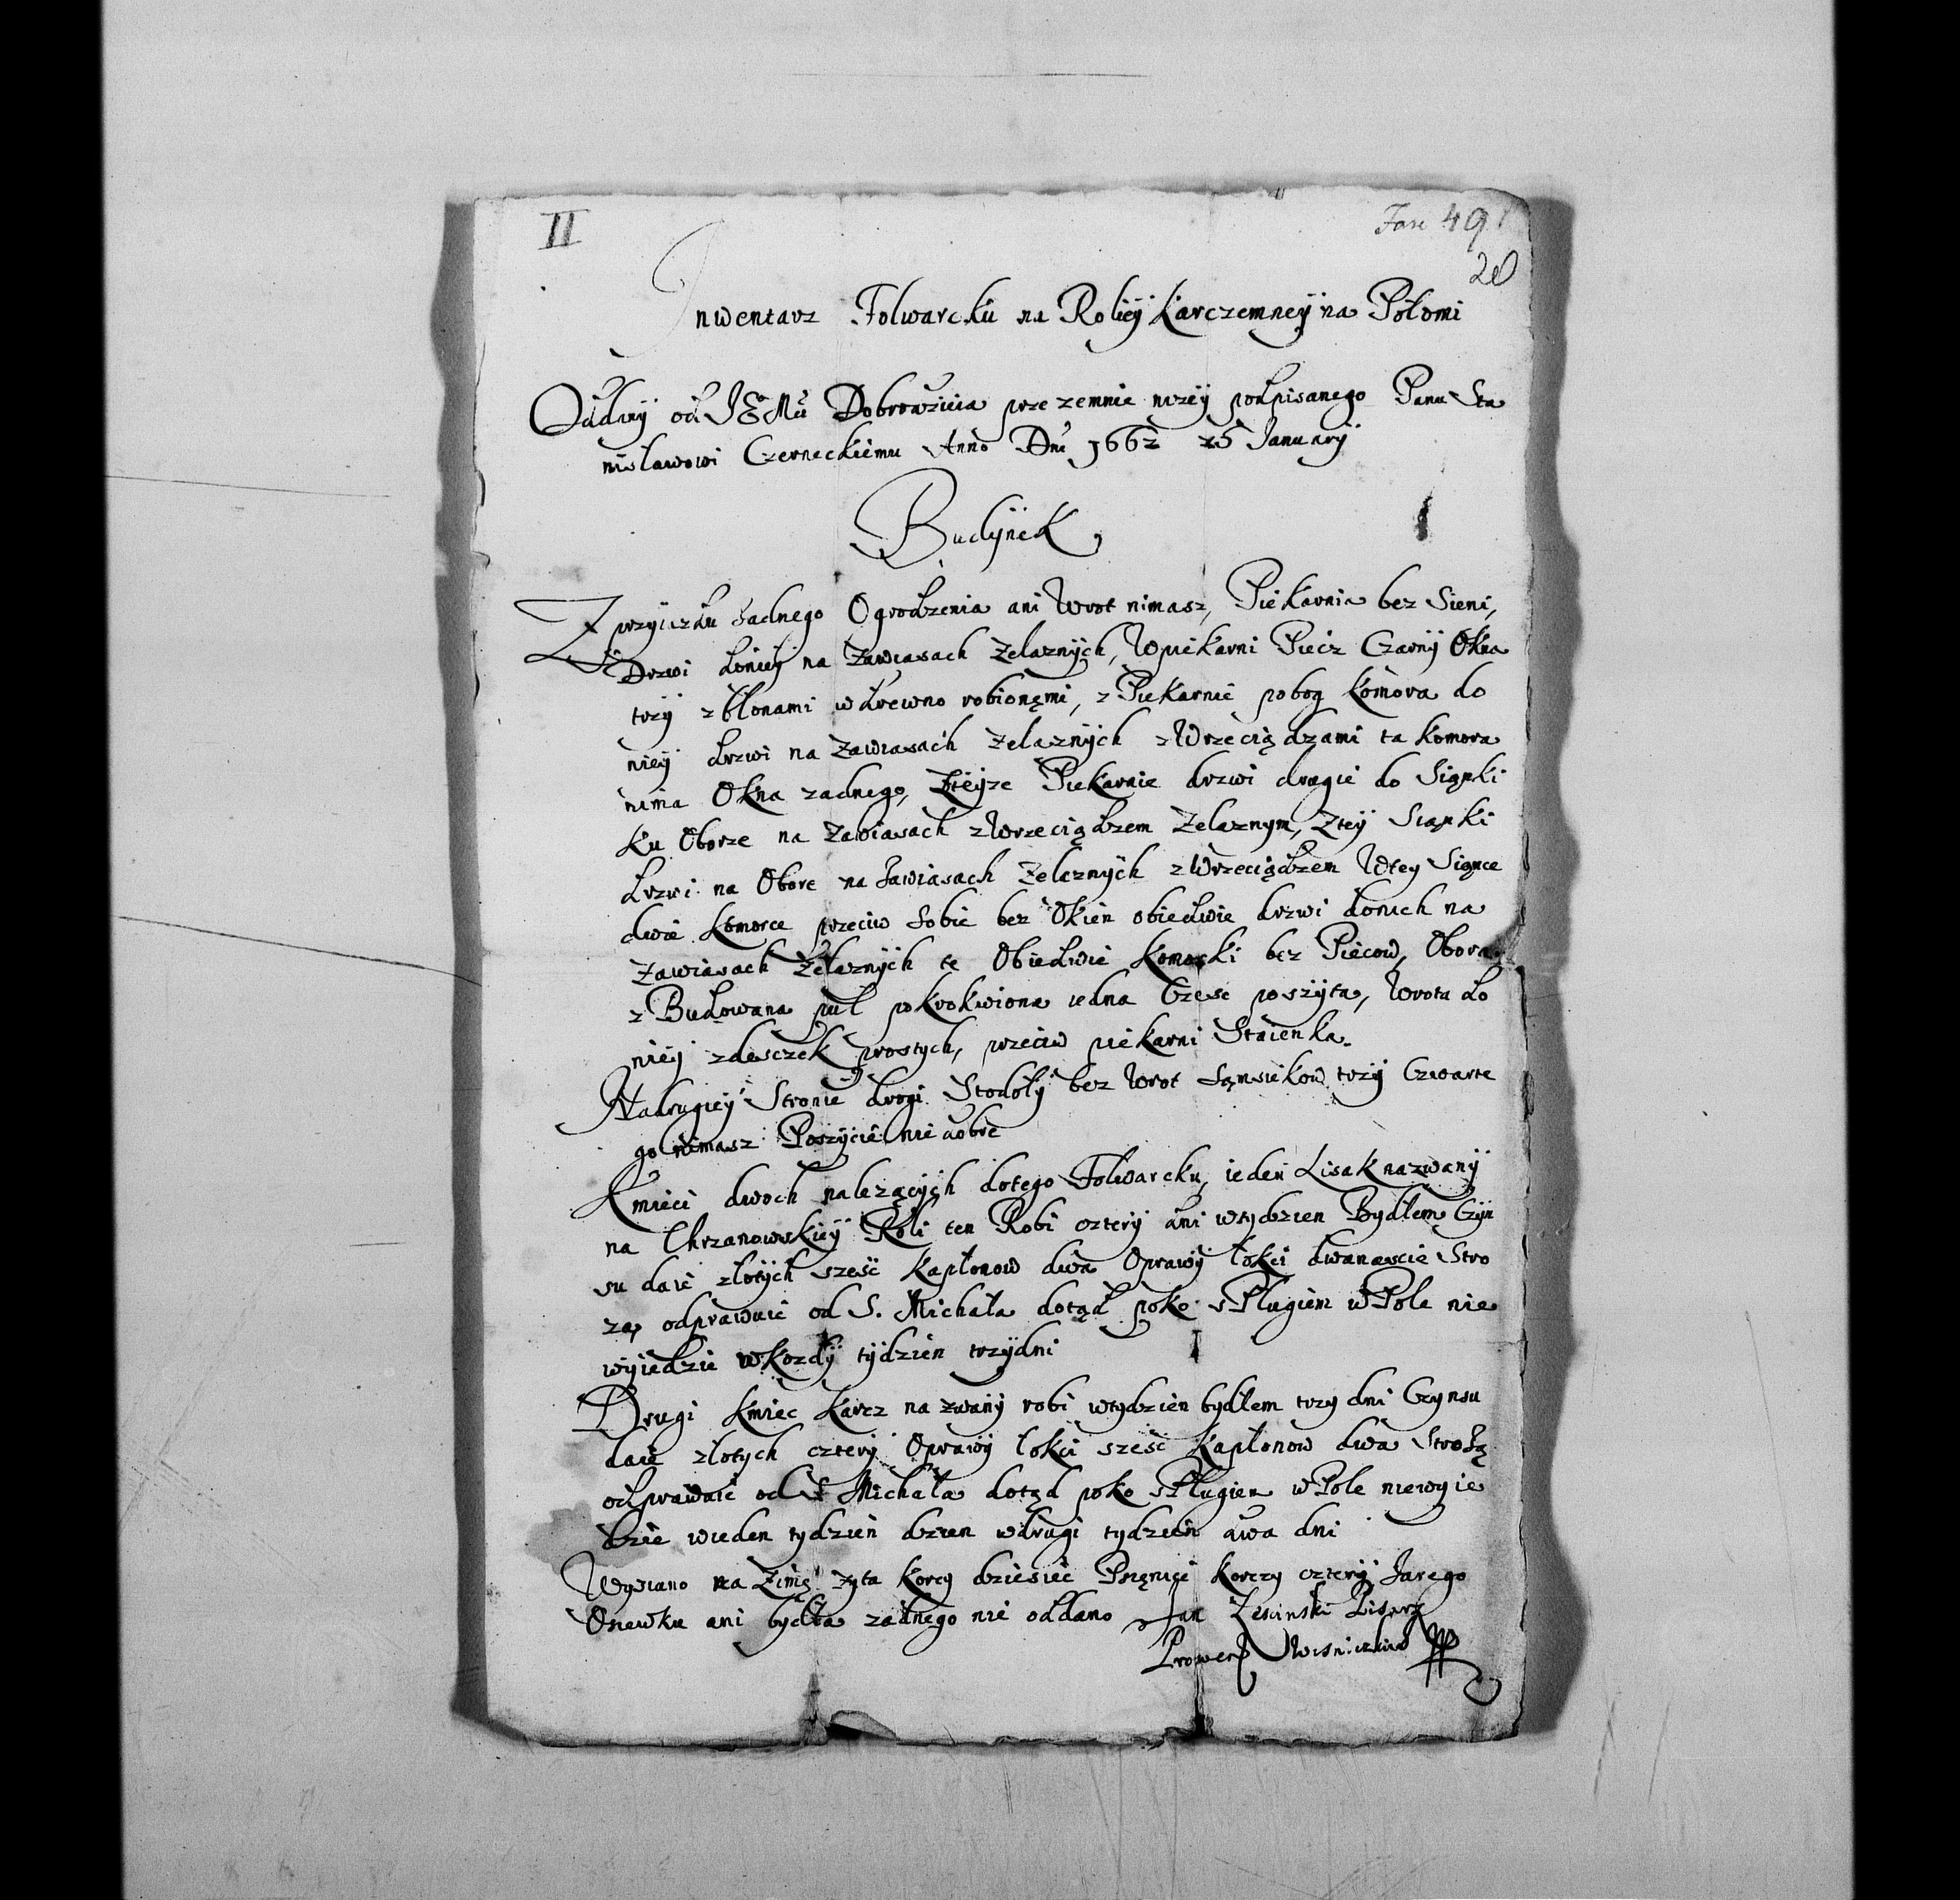 II
Fasc 49
20
Inwentarz Folwarcku na Roliey Karczemney na Połomi
Oddany od JEMci Dobrodzieia przezemnie nizey podpisanego Panu Sta
nisławowi Czerneckiemu Anno Dni 1662 25 January
Budynek
Z przyiazdu zadnego Ogrodzenia ani Wrot nimasz, Piekarnia bez Sieni,
Drzwi doniey na zawiasach zelaznych, Wpiekarni Piecz Czarny Okna
trzy z błonami w drewno robionęmi, z Piekarnie pobog Komora do
niey drzwi na zawiasach zelaznych z Wrzeciądzami ta Komora
nima Okna zadnego, Zteyze Piekarnie drzwi drugie do Siąnki
Ku Oborze na zawiasach z Wrzeciądzem zelaznym, Ztey Siąnki
drzwi na Obore na zawiasach zelaznych z Wrzeciądzem Wtey Siąnce
dwie Komorce przeciw sobie bez Okien obiedwie drzwi donich na
zawiasach zelaznych te Obiedwie Komorki bez Piecow, Obora
z Budowana puł pokrokwiona iedna Czesc poszyta, Wrota do
niey zdesczek prostych, przeciw piekarni Stаienka.
Nadrugiey Stronie drogi Stodoły bez Wrot Sąmsiekow trzy Czwarte
go nimasz Poszycie nie dobre
Kmieci dwoch nalezących dotego Folwarcku, ieden Lisak nazwany
na Chrzanowskiey Roli ten Robi cztery dni wtydzien Bydłem Czyn
su daie złotych sześć Kapłonow dwa Oprawy łokci dwanascie Stro
zą odprawuie od S. Michała dotąd poko s Pługiem w Pole nie
wyiedzie wkozdy tydzien trzydni
Drugi Kmiec Karcz nazwany robi wtydzien bydłem trzy dni Czynsu
daie złotych cztery Oprawy łokci sześć Kapłonow dwa Strozą
odprawuie od S Michała dotąd poko s Pługiem w Pole niewyie
dzie wieden tydzien dzien wdrugi tydzien dwa dni
Wysiano na Zimę zyta Korcy dziesiec Pszęnice Korczy cztery Jarego
Osiewku ani bydła zadnego nie oddano Jan Pisarz
Prowent Wisnickiego